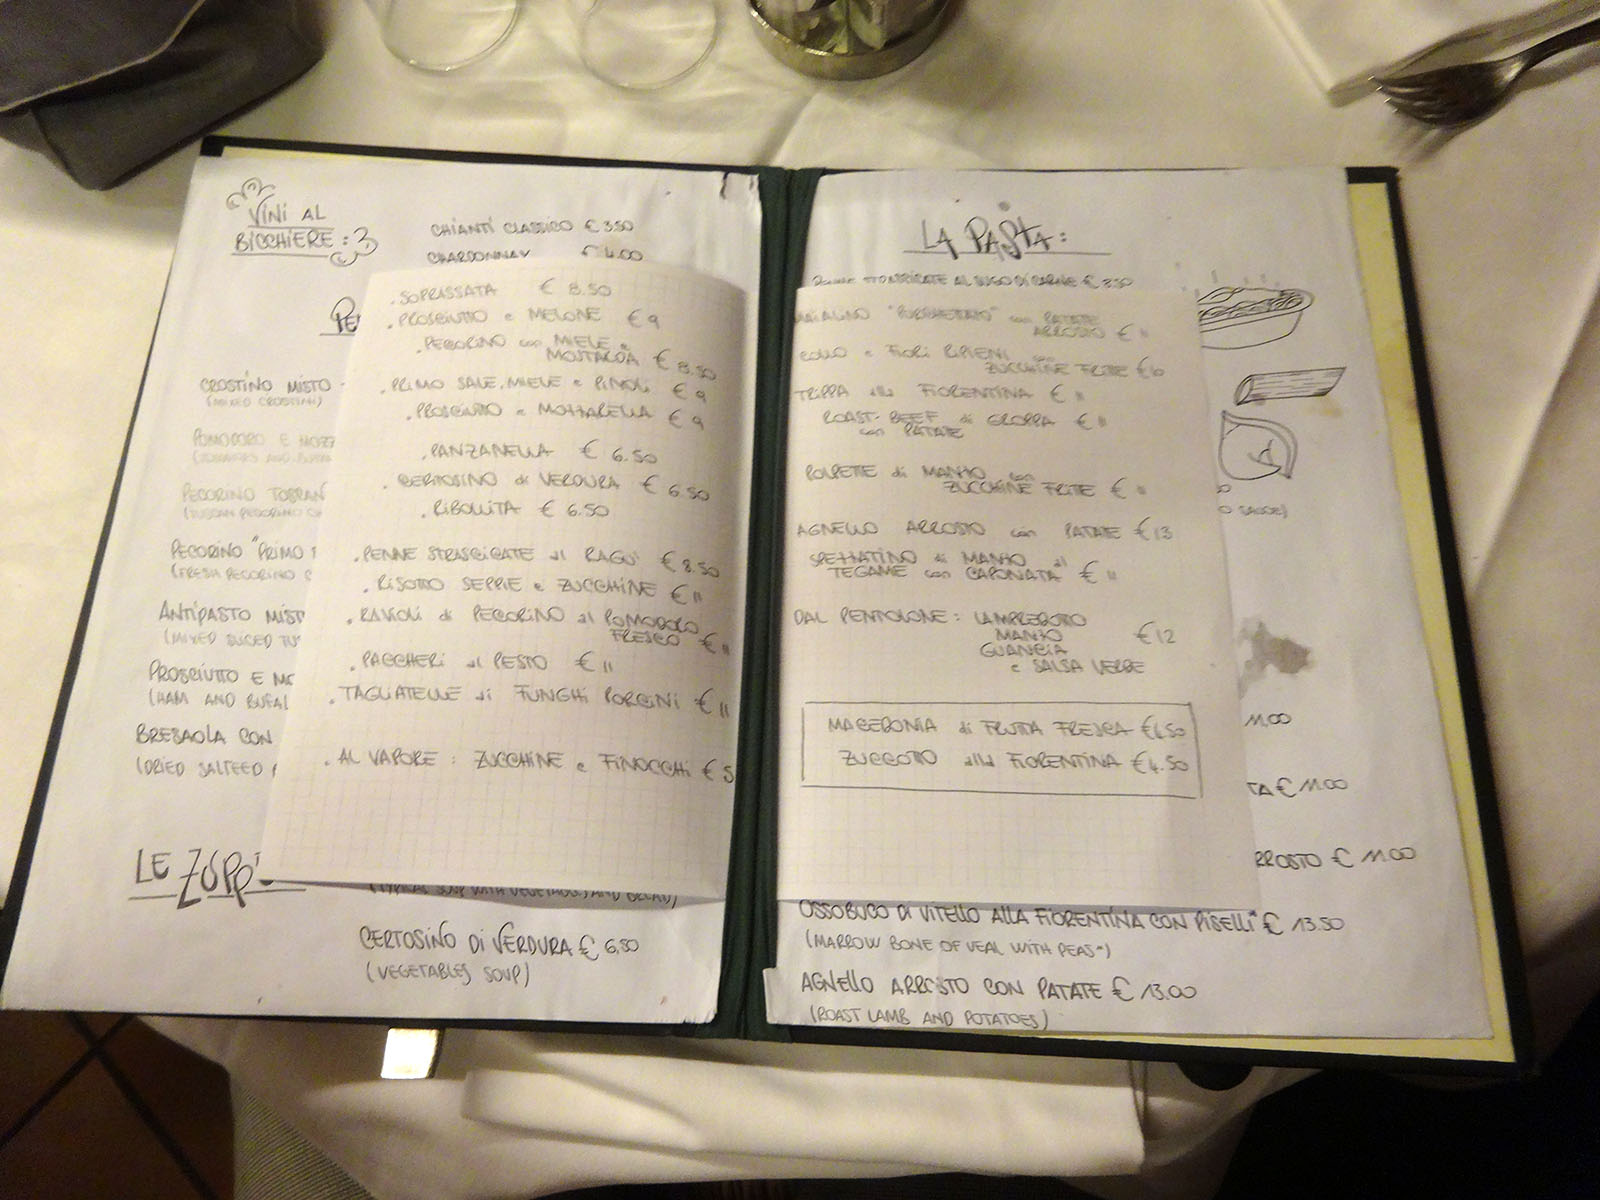 VINI AL
BICCHIERE:
CHIANTI CLASSICO € 3.50
CHARDONNAY € 4.00
CROSTINO MISTO
(MIXED CROSTINI)
POMODORO E MOZZ
PECORINO TOSCAN
(TUSCAN PECORINO
PECORINO "PRIMO
(FRESH PECORINO
ANTIPASTO MIST
(MIXED SLICED TUS
PROSCIUTTO E MO
(HAM AND BUFAL
BRESAOLA CON
(DRIED SALTEED
LE ZUPP
(TYPICAL SOUP WITH VEGETABLES AND BREAD)
CERTOSINO DI VERDURA € 6,50
(VEGETABLES SOUP)
. SOPRASSATA € 8.50
. PROSCIUTTO e MELONE € 9
. PECORINO con MIELE e
MOSTARDA € 8.50
. PRIMO SALE, MIELE e PINOLI € 9
. PROSCIUTTO e MOZZARELLA € 9
. PANZANELLA € 6.50
. CERTOSINO di VERDURA € 6.50
. RIBOLLITA € 6.50
. PENNE STRASCICATE al RAGU' € 8.50
. RISOTTO SEPPIE e ZUCCHINE € 11
. RAVIOLI di PECORINO al POMODORO
FRESCO € 11
. PACCHERI al PESTO € 11
. TAGLIATELLE ai FUNGHI PORCINI € 11
. AL VAPORE : ZUCCHINE e FINOCCHI € 5
LA PASTA:
PENNE STRASCICATE AL SUGO DI CARNE € 8.50
MAIALINO "PORCHETTATO" con PATATE
ARROSTO € 11
COLLO e FIORI RIPIENI con
ZUCCHINE FRITTE €10
TRIPPA alla FIORENTINA € 11
ROAST-BEEF di GROPPA € 11
con PATATE
POLPETTE di MANZO con
ZUCCHINE FRITTE € 11
AGNELLO ARROSTO con PATATE €13
SPEZZATINO di MANZO al
TEGAME con CAPONATA € 11
DAL PENTOLONE : LAMPREDOTTO
MANZO €12
GUANCIA
e SALSA VERDE
MACEDONIA di FRUTTA FRESCA €4.50
ZUCCOTTO alla FIORENTINA €4.50
11.00
TA € 11.00
RROSTO € 11.00
OSSOBUCO DI VITELLO ALLA FIORENTINA CON PISELLI* € 13.50
(MARROW BONE OF VEAL WITH PEAS*)
AGNELLO ARROSTO CON PATATE € 13.00
(ROAST LAMB AND POTATOES)